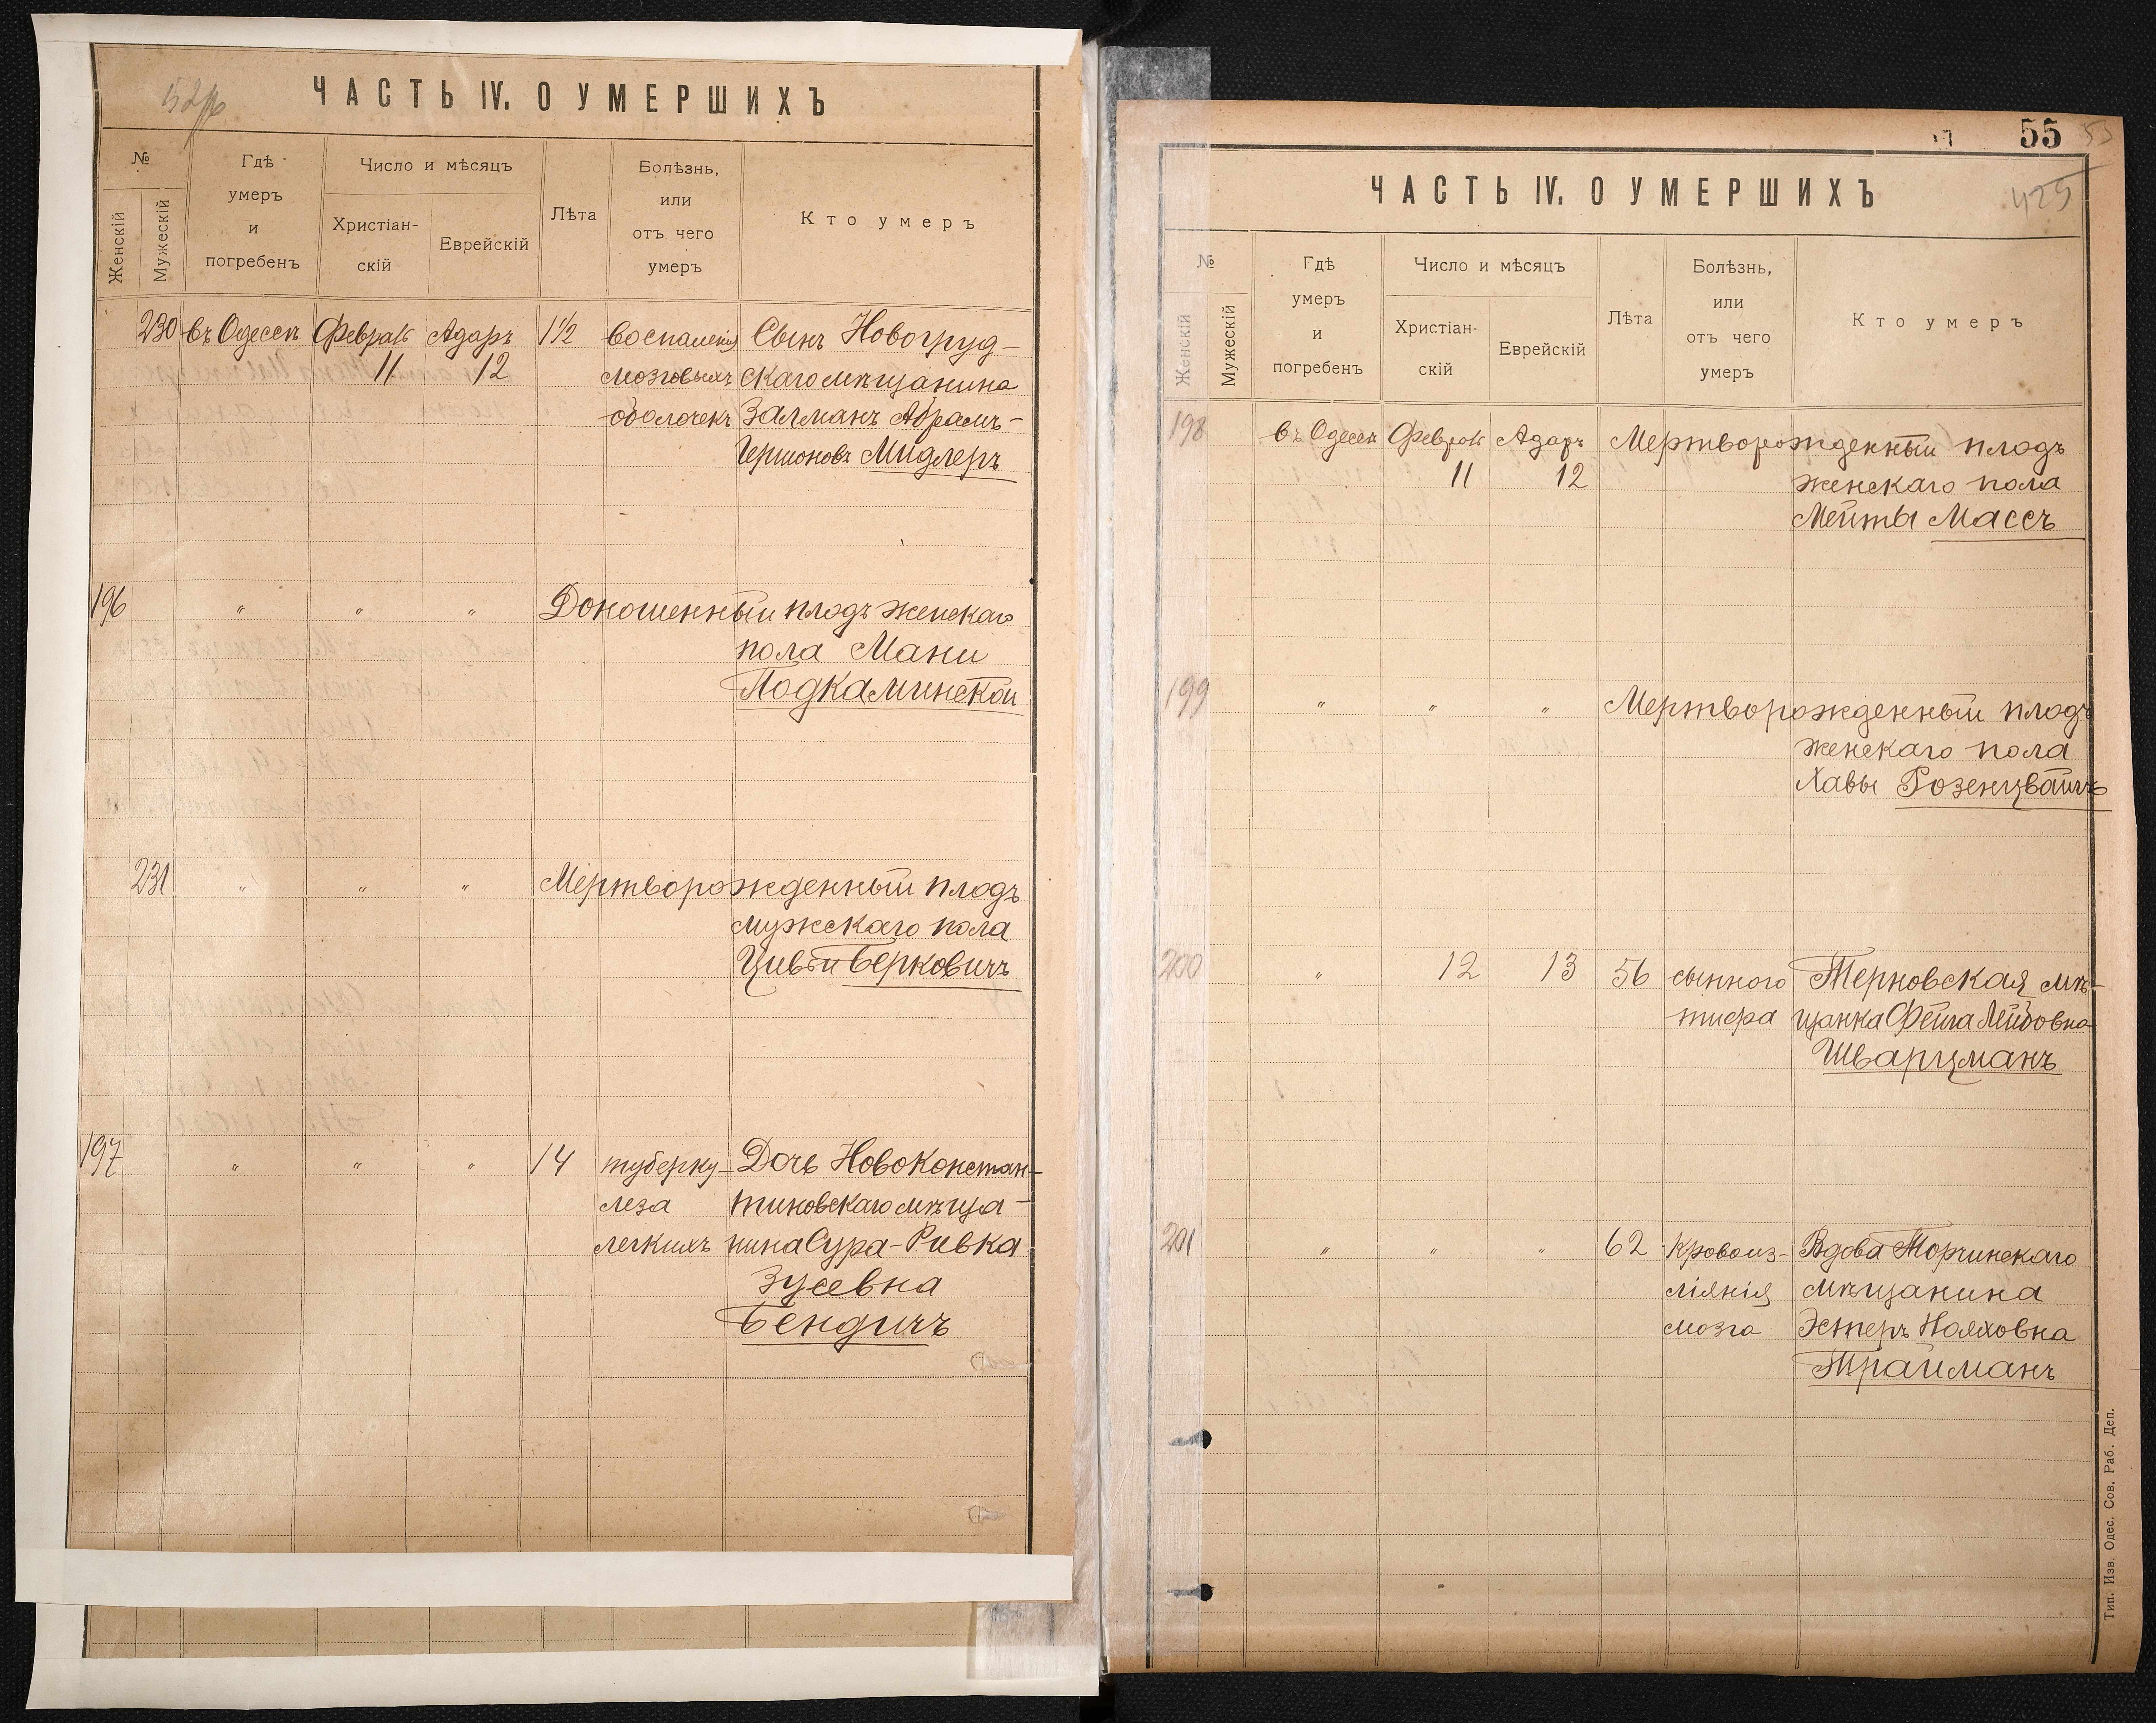 ЧАСТЬ IV. О УМЕРШИХЪ
№
Женскій
Мужескій
Гдѣ
умеръ
и
погребенъ
Число и мѣсяцъ
Христіан-
скій
Еврейскій
Лѣта
Болѣзнь,
или
отъ чего
умеръ
Кто умеръ
230 въ Одессѣ Феврал Адаръ 1½ воспаленія Сынъ Новогруд-
11 12 мозговыхъ скаго мѣщанина
оболочекъ Залманъ Абрамъ-
Гершоновъ Мидлеръ
196 " " " Доношенный плодъ женскаго
пола Мани
Подкаминской
231 " " " Мертворожденный плодъ
мужскаго пола
Цивьи Берковичъ
197 " " " 14 туберку- Дочь Новоконстан-
леза тиновскаго мѣща-
легкихъ нина Сура-Ривка
Зусевна
Бендичъ
55
ЧАСТЬ IV. О УМЕРШИХЪ
429
№
Женскій
Мужескій
Гдѣ
умеръ
и
погребенъ
Число и мѣсяцъ
Христіан-
скій
Еврейскій
Лѣта
Болѣзнь,
или
отъ чего
умеръ
Кто умеръ
198 въ Одессѣ Феврал Адаръ Мертворожденный плодъ
11 12 женскаго пола
Мейты Массъ
199 " " " Мертворожденный плодъ
женскаго пола
Хавы Розенцвайгъ
200 " 12 13 56 сыпного Терновская мѣ-
тифа щанка Фейга Лейбовна
Шварцманъ
201 " " " 62 Кровоиз- Вдова Торчинскаго
ліянія мѣщанина
мозга Эстеръ Нояховна
Трайманъ
Тип. Изв. Одес. Сов. Раб. Деп.